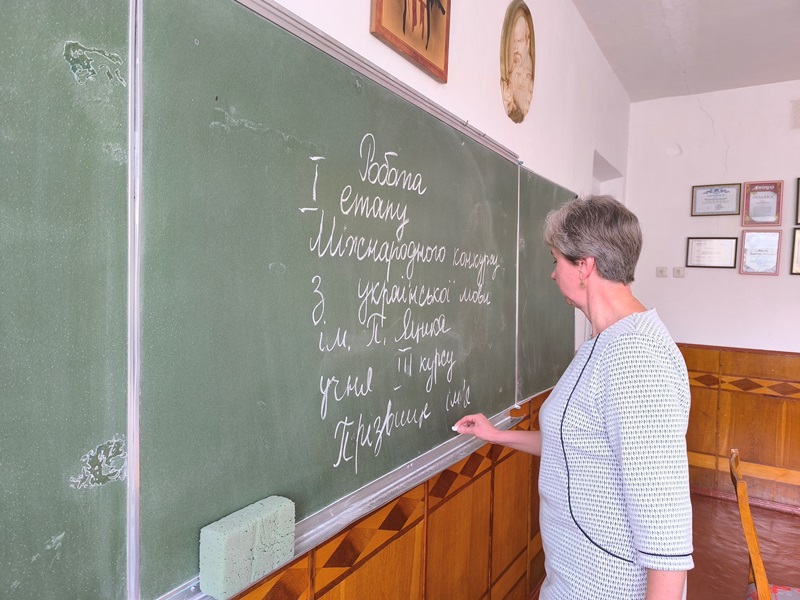 Робота
І етапу
Міжнародного конкурсу
з української мови
ім. П. Яцика
учня ІІІ курсу
Прізвище ім'я